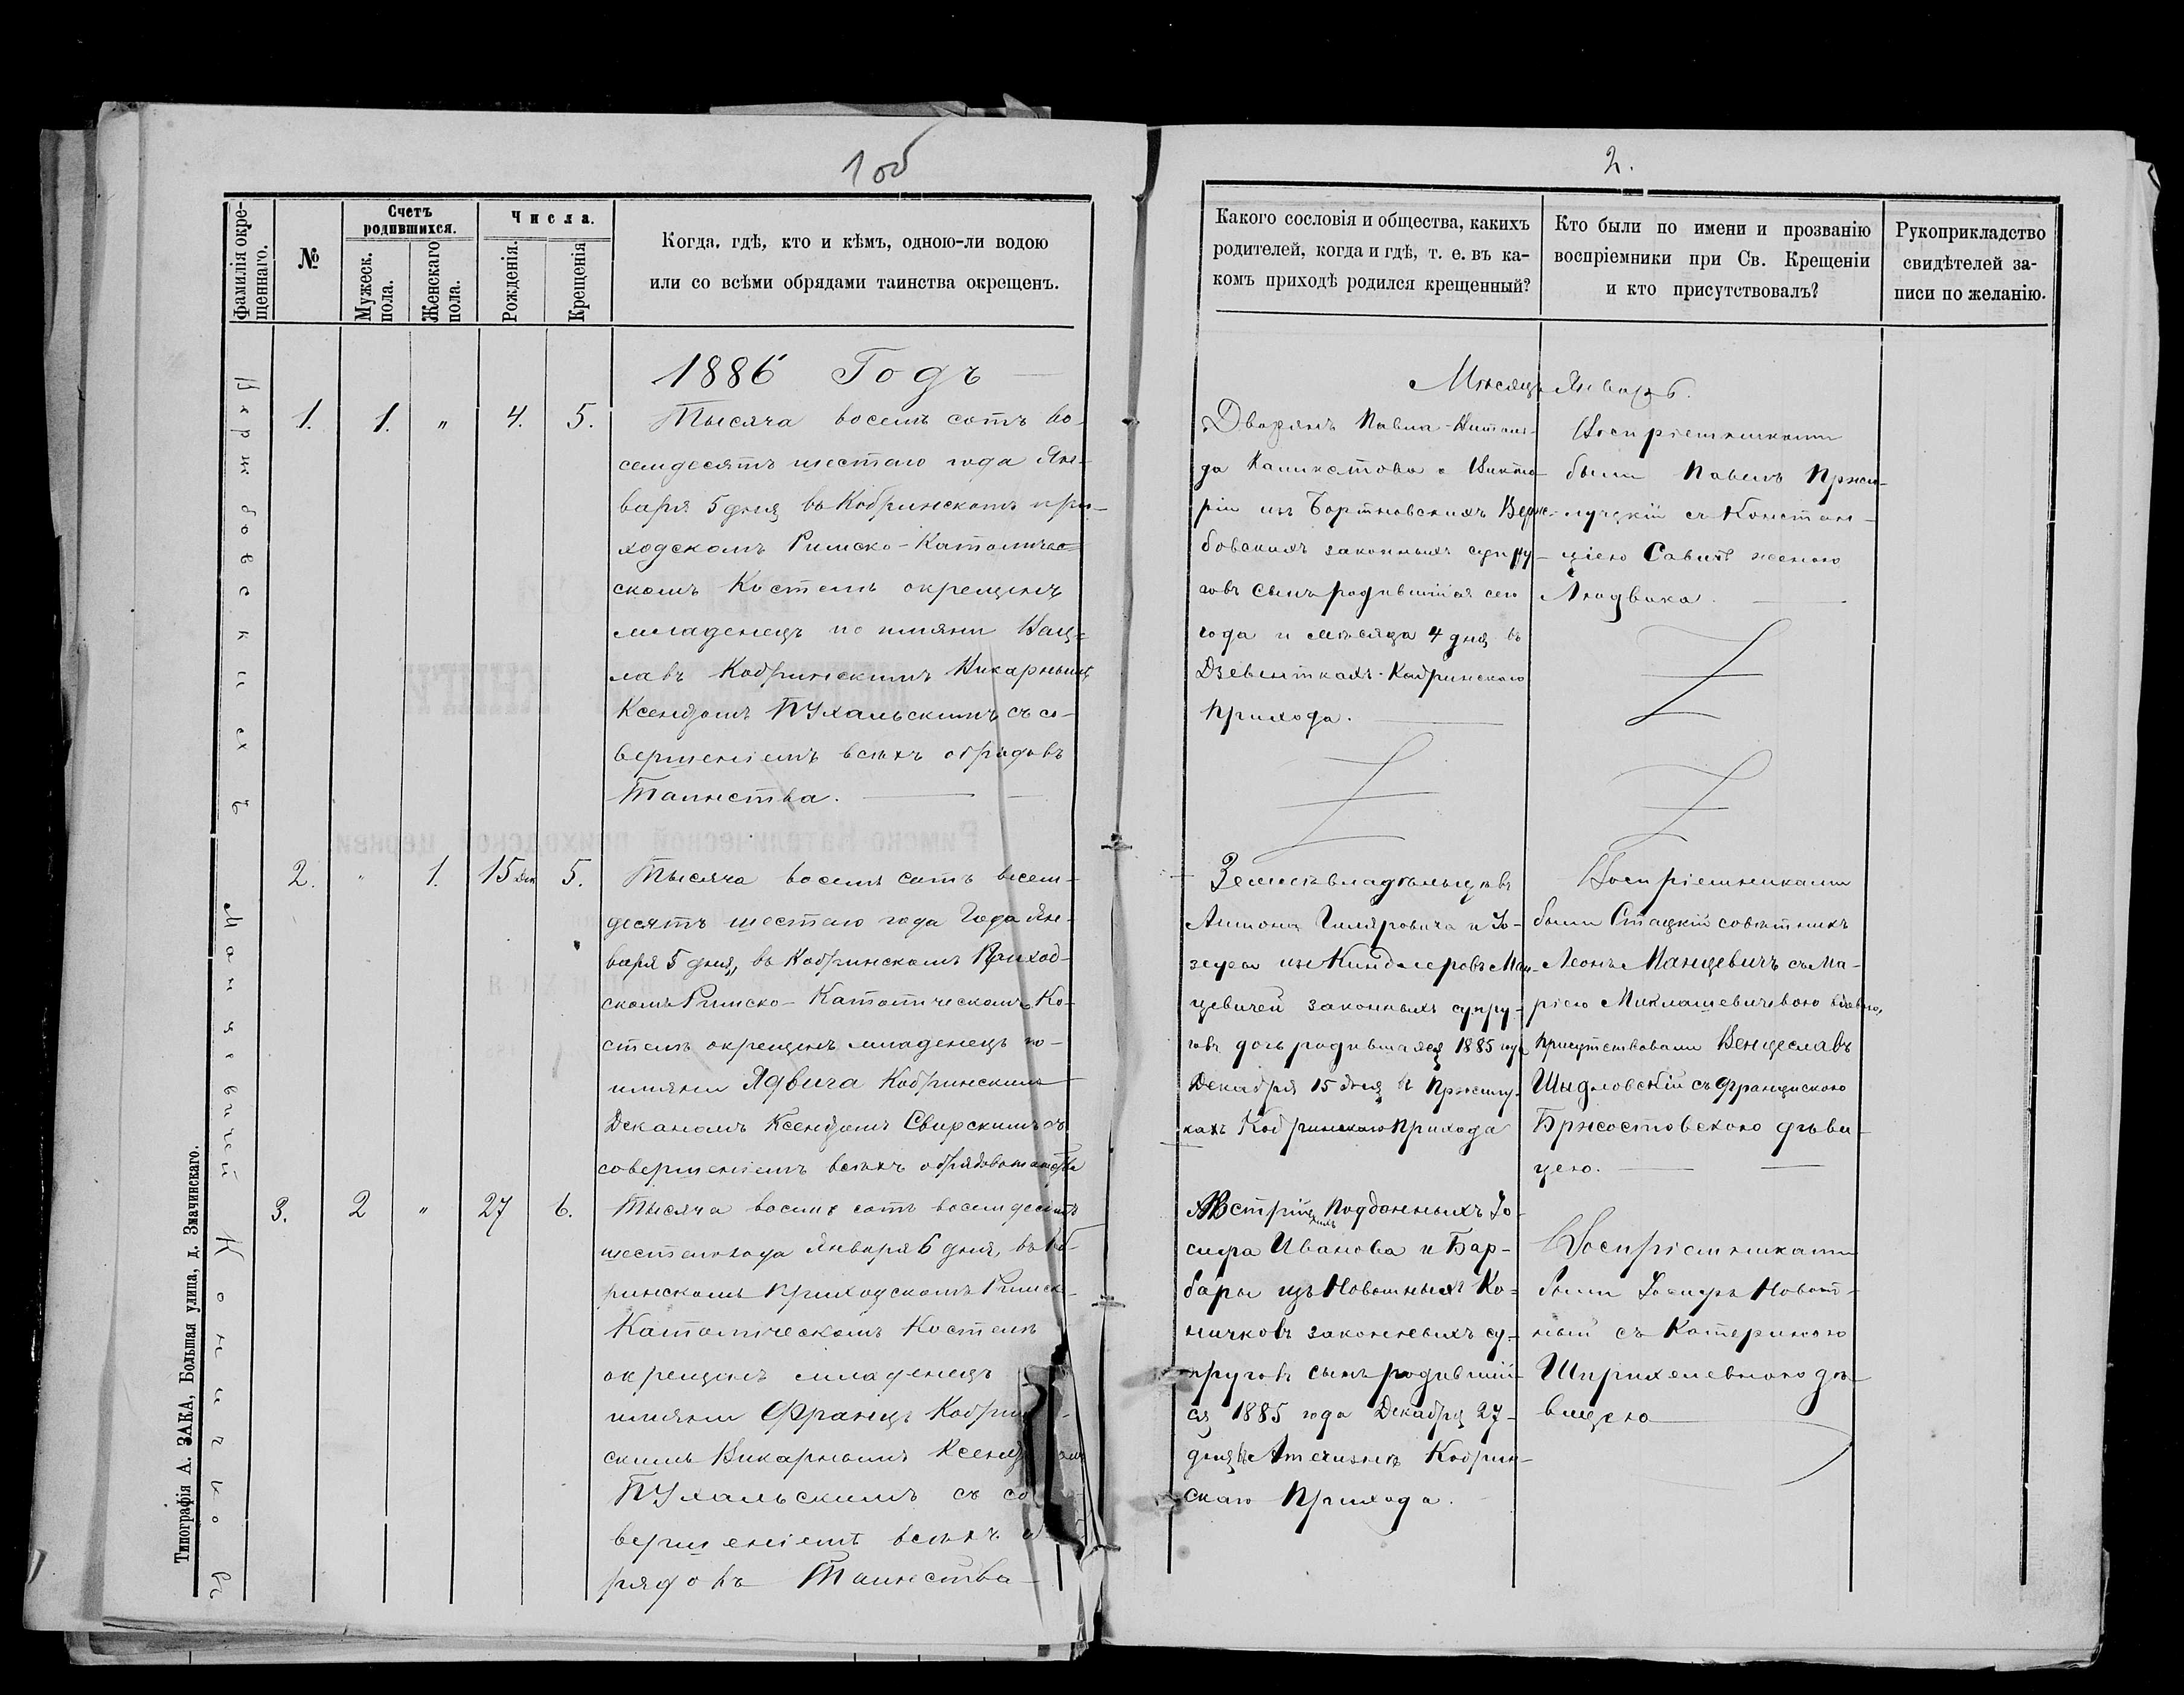 1 об
2.
Фамилія окре-
щеннаго.
№
Счетъ
родившихся.
Мужеск.
пола.
Женскаго
пола.
Числа.
Рожденія.
Крещенія
Когда, гдѣ, кто и кѣмъ, одною-ли водою
или со всѣми обрядами таинства окрещенъ.
Какого сословія и общества, какихъ
родителей, когда и гдѣ, т. е. въ ка-
комъ приходѣ родился крещенный?
Кто были по имени и прозванію
воспріемники при Св. Крещеніи
и кто присутствовалъ?
Рукоприкладство
свидѣтелей за-
писи по желанію.
1886 Годъ
Мѣсяцъ Январь.
Вержбовскихъ
1. 1. " 4. 5.
Тысяча восемь сотъ во-
семдесятъ шестаго года Ян-
варя 5 дня въ Кобринскомъ при-
ходскомъ Римско-Католичес-
скомъ Костелѣ окрещенъ
младенецъ по имяни Вац-
лавъ Кобринскимъ Викарнымъ
Ксендзомъ Пухальскимъ съ со-
вершеніемъ всѣхъ обрядовъ
Таинства.
Дворянъ Павла-Витоль-
да Каликстова и Викто-
ріи изъ Бортновскихъ Верж-
бовскихъ законныхъ супру-
говъ сынъ родившійся сего
года и мѣсяца 4 дня въ
Дзевяткахъ Кобринскаго
прихода.
Воспріемниками
были Павелъ Пржи-
луцкій съ Констан-
ціею Савичъ женою
Людвика.
Манцевичей
2. " 1. 15 Дек 5.
Тысяча восемь сотъ восем-
десятъ шестаго года Года Ян-
варя 5 дня, въ Кобринскомъ Приход-
скомъ Римско-Католическомъ Ко-
стелѣ окрещенъ младенецъ по-
имяни Ядвига Кобринскимъ
Деканомъ Ксендзомъ Свирскимъ съ
совершеніемъ всѣхъ обрядовъ таинства
Землевладѣльцевъ
Антона Гиляровича и Іо-
зефы изъ Киндлеровъ Ман-
цевичей законныхъ супру-
говъ дочь родившаяся 1885 года
Декабря 15 дня въ Пржилу-
кахъ Кобринскаго Прихода
Воспріемниками
были Статскій совѣтникъ
Леонъ Манцевичъ съ Ма-
ріею Миклашевичевою
Присутствовали Венцеславъ
Шыдловскій съ Францискою
Бржостовскою дѣви-
цею.
Коничковъ
3. 2 " 27 6.
Тысяча восемь сотъ восемдесятъ
шестаго года Января 6 дня, въ Коб-
ринскомъ Приходскомъ Римско-
Католическомъ Костелѣ
окрещенъ младенецъ
имяни Францъ Кобрин-
скимъ Викарнымъ Ксендзомъ
Пухальскимъ съ со
вершеніемъ всѣхъ об
рядовъ Таинства
Австрійскихъ Подданныхъ Іо-
сифа Иванова и Бар-
бары изъ Новотныхъ Ко-
ничковъ законныхъ су-
пруговъ сынъ родившій-
ся 1885 года Декабря 27-
дня въ Атечизнѣ Кобрин-
скаго Прихода.
Воспріемниками
были Іосифъ Новот-
ный съ Катериною
дѣ-
вицею
Типографія А. ЗАКА, Большая улица, д. Значинскаго.